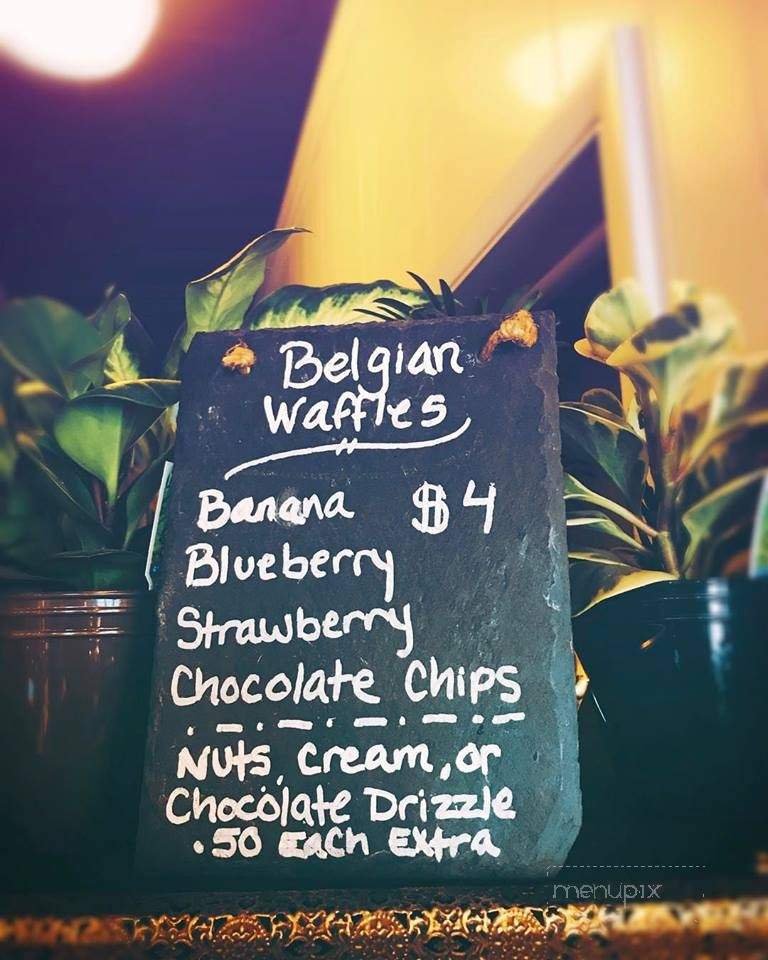 Belgian
Waffles
Banana $4
Blueberry
Strawberry
Chocolate Chips
Nuts, Cream, or
Chocolate Drizzle
.50 Each Extra
menupix